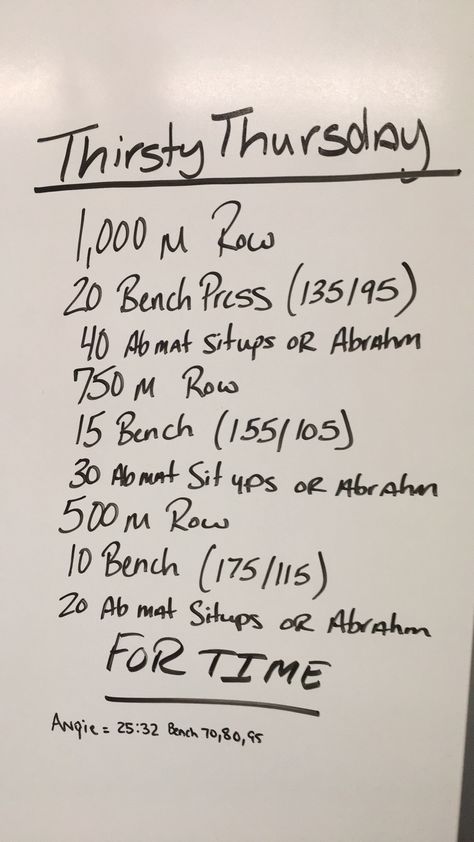 Thirsty Thursday
1,000 M Row
20 Bench Press (135/95)
40 Ab mat Situps OR Abrahm
750 M Row
15 Bench (155/105)
30 Ab mat Sit ups OR Abrahm
500 M Row
10 Bench (175/115)
20 Ab mat Situps OR Abrahm
FOR TIME
Angie = 25:32 Bench 70,80,95